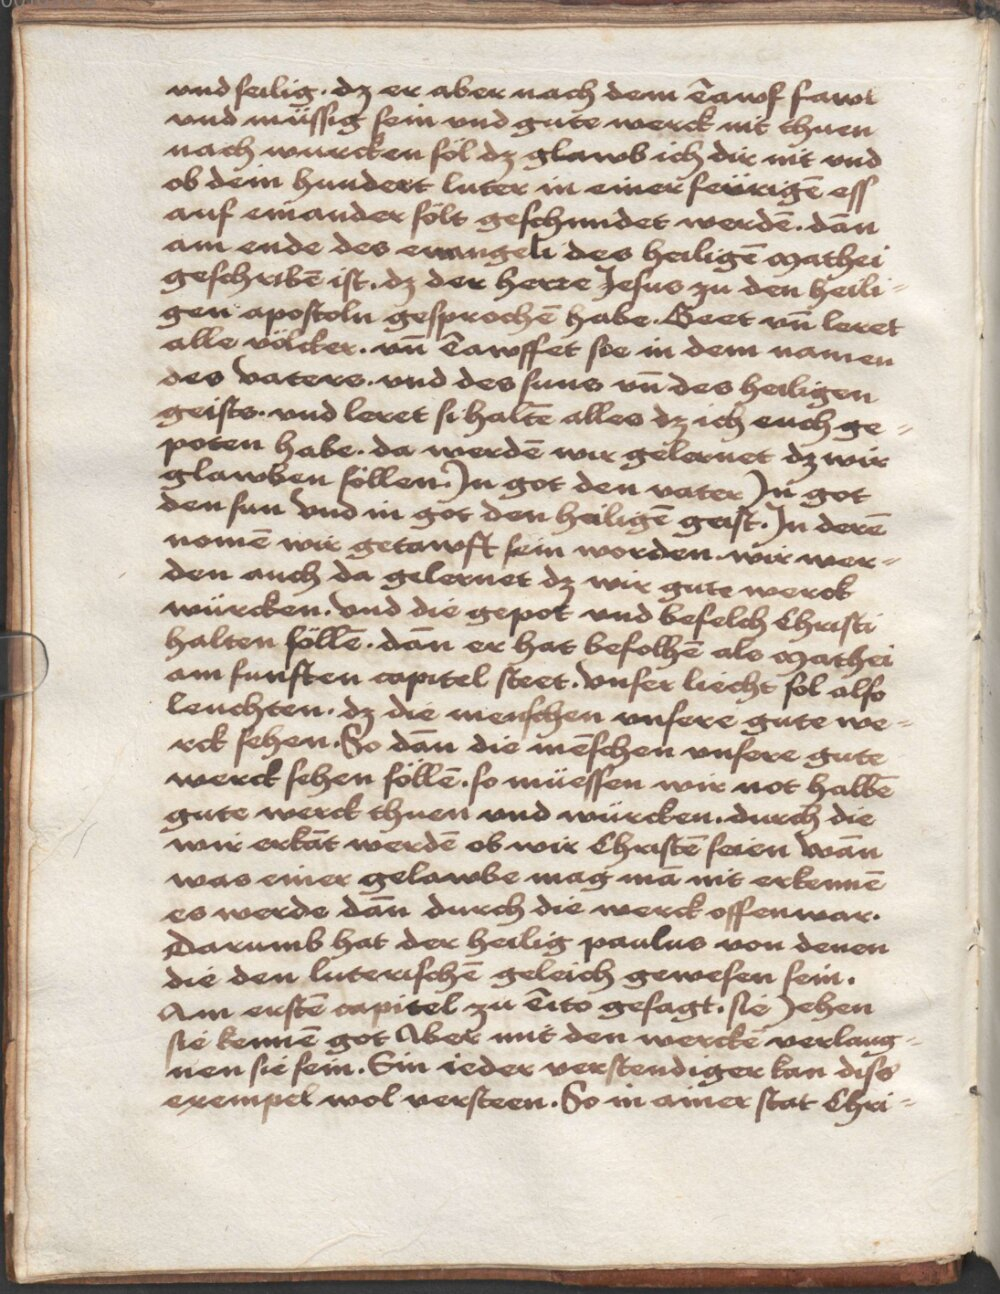 und seilig. dz er aber nach dem Tawf fawl
und müssig sein und gute werck nit thuen
nach wurcken söl dz glawb ich dir nit und
ob dein hundert luter in einer feürigē ess
auf einander sölt geschmidet werdē. dān
am ende des ewangeli des heiligē Mathei
geschribē ist. dz der herre Jesus zu den heili-
gen apostoln gesprochē habe. Geet vn̄ leret
alle völcker. vn̄ Tawffet sie in dem namen
des Vaters. und des suns vn̄ des heiligen
geists. und leret si haltē alles dz ich euch ge-
poten habe. da werdē wir gelernet dz wir
glawben söllen. Jn got den vater Jn got
den sun Und in got den heiligē geist. Jn derē
nomē wir getawft sein worden. wir wer-
den auch da gelernet dz wir gute werck
würcken. Und die gepot und befelch Christi
halten söllē. dān er hat befolhē als Mathei
am funften capitel steet. Unser liecht sol also
leuchten. dz die menschen unsere gute we-
rck sehen. So dān die mēschen unsere gute
werck sehen söllē. so müessen wir not halbē
gute werck thuen und würcken. durch die
wir erkāt werdē ob wir Christē seien Wān
was einer gelawbe mag mā nit erkennē
es werde dān durch die werck offenwar.
Darumb hat der heilig paulus von denen
die den luterischē geleich gewesen sein.
Am erstē capitel zu Tito gesagt. sie Jehen
sie kennē got Aber mit den werckē verlaug-
nen sie sein. Ein ieder verstendiger kan diss
exempel wol versteen. So in ainer stat Chri-